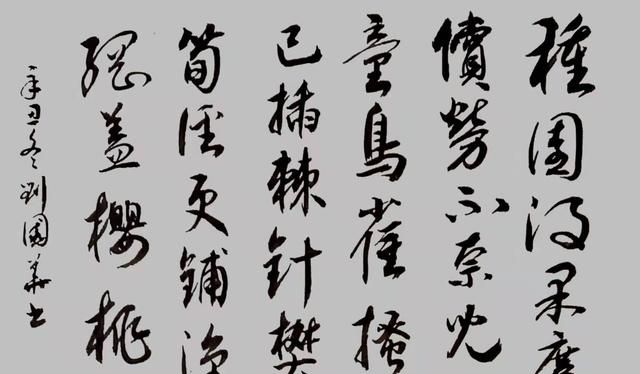 種園得果廑
償勞不奈兒
童鳥雀搔
已插棘針樊
筍徑更鋪漁
網盖櫻桃
辛丑冬劉國華书